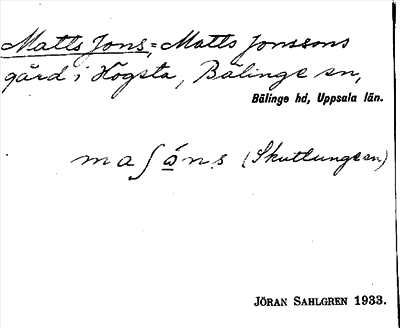 Matts Jons, = Matts Jonssons
gård i Högsta, Bälinge sn,
Bälinge hd, Uppsala län.
(Skuttunge sn)
JÖRAN SAHLGREN 1933.